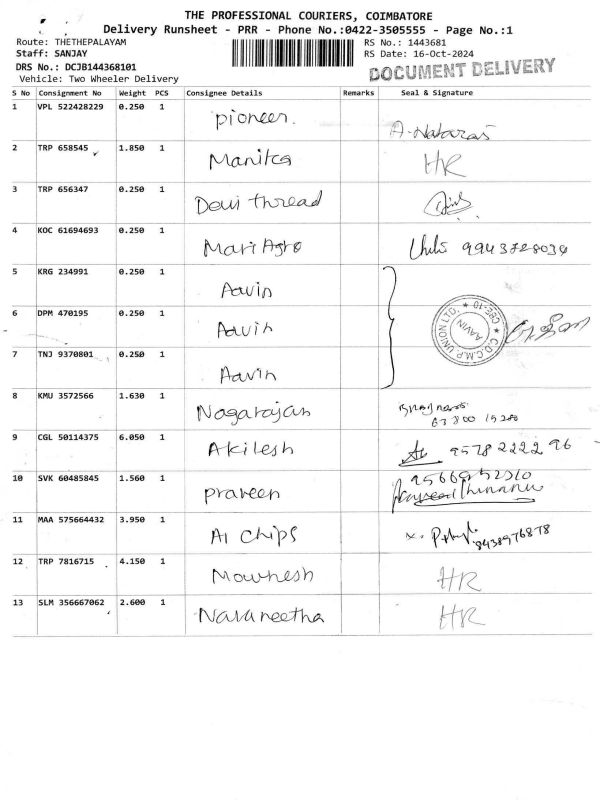 THE PROFESSIONAL COURIERS, COIMBATORE
Delivery Runsheet - PRR - Phone No.:0422-3505555 - Page No.:1
Route: THETHEPALAYAM RS No.: 1443681
Staff: SANJAY RS Date: 16-Oct-2024
DRS No.: DCJB144368101 DOCUMENT DELIVERY
Vehicle: Two Wheeler Delivery
S No Consignment No Weight PCS Consignee Details Remarks Seal & Signature
1 VPL 522428229 0.250 1 Pioneer. A. Nataraj
2 TRP 658545 1.850 1 Manitca HR
3 TRP 656347 0.250 1 Devi thread
4 KOC 61694693 0.250 1 Mari Agro 9943728034
5 KRG 234991 0.250 1 Aavin
6 DPM 470195 0.250 1 Aavin C.D.C.M.P. UNION LTD. * CBE-10 * AAVIN
7 TNJ 9370801 0.250 1 Aavin
8 KMU 3572566 1.630 1 Nagarajan
9 CGL 50114375 6.050 1 Akilesh 95782222 96
10 SVK 60485845 1.560 1 praveen
11 MAA 575664432 3.950 1 A1 chips 8438976878
12 TRP 7816715 4.150 1 Mownesh HR
13 SLM 356667062 2.600 1 Navaneetha HR